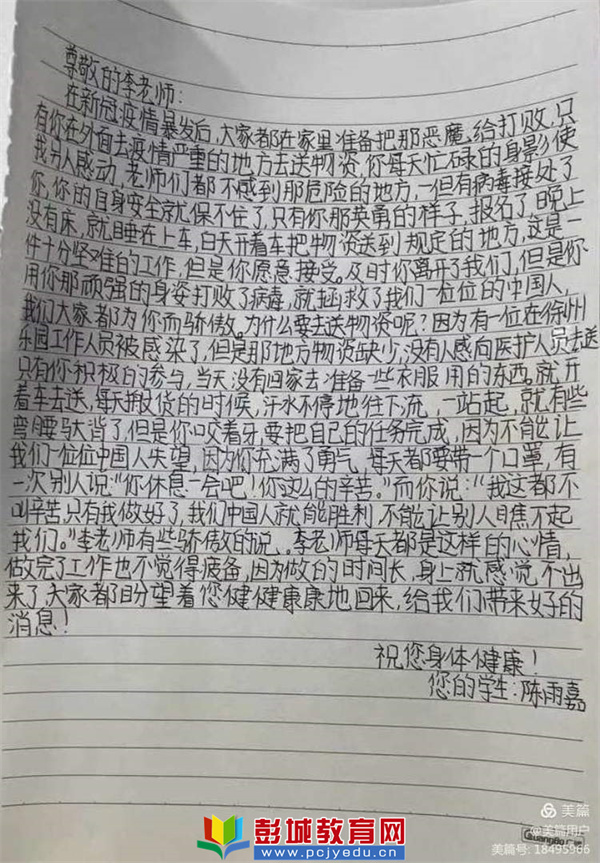 尊敬的李老师：
在新冠疫情暴发后，大家都在家里准备把那恶魔给打败，只
有你在外面去疫情严重的地方去送物资，你每天忙碌的身影使
我别人感动，老师们都不感到那危险的地方，一但有病毒接处了
你，你的自身安全就保不住了，只有你那英勇的样子，报名了，晚上
没有床，就睡在上车，白天开着车把物资送到规定的地方，这是一
件十分坚难的工作，但是你愿意接受。及时你离开了我们，但是你
用你那顽强的身姿打败了病毒，就拯救了我们一位位的中国人，
我们大家都为你而骄傲。为什么要去送物资呢？因为有一位在徐州
乐园工作人员被感染了，但是那地方物资缺少，没有人感向医护人员去送
只有你积极的参与，当天没有回家去准备一些衣服用的东西。就开
着车去送，每天搬货的时候，汗水不停地往下流，一站起，就有些
弯腰驼背了，但是你咬着牙，要把自己的任务完成，因为不能让
我们一位位中国人失望，因为你充满了勇气，每天都要带一个口罩，有
一次别人说：“你休息一会吧！你这么的辛苦。”而你说：“我这都不
叫辛苦，只有我做好了，我们中国人就能胜利，不能让别人瞧不起
我们。”李老师有些骄傲的说。李老师每天都是这样的心情，
做完了工作也不觉得疲备，因为做的时间长，身上就感觉不出
来了，大家都盼望着您健健康康地回来，给我们带来好的
消息！
祝您身体健康！
您的学生：陈雨嘉
GuangBo
美篇
@美篇用户
美篇号：18495966
彭城教育网
www.pcjyedu.cn